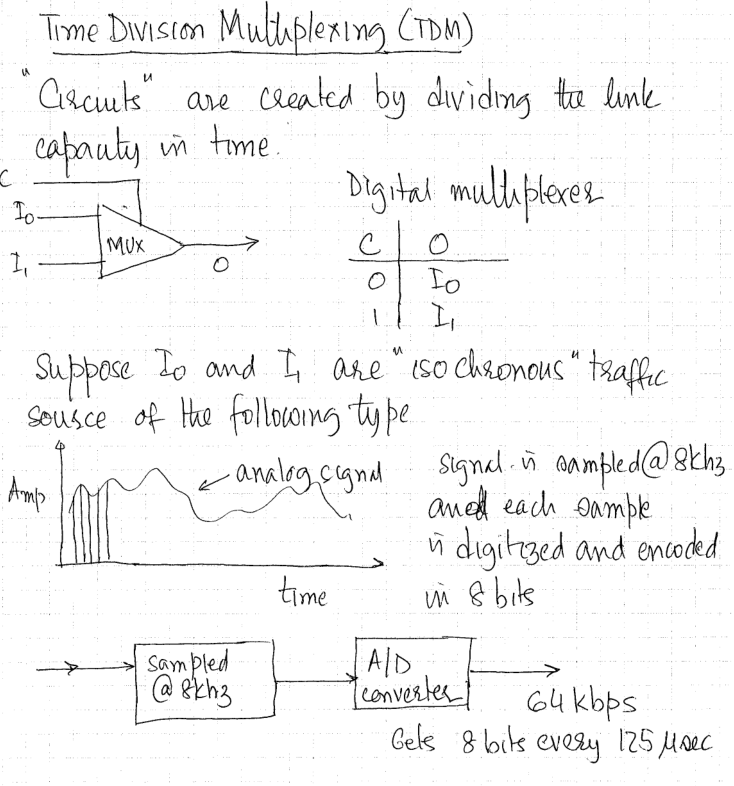 Time Division Multiplexing (TDM)
"Circuits" are created by dividing the link
capacity in time.
C
I0
I1
MUX
O
Digital multiplexer
C O
0 I0
1 I1
Suppose I0 and I1 are "isochronous" traffic
source of the following type
Amp
analog signal
time
signal is sampled @ 8khz
and each sample
is digitized and encoded
in 8 bits
sampled
@ 8khz
A/D
converter
64 kbps
Gets 8 bits every 125 μsec